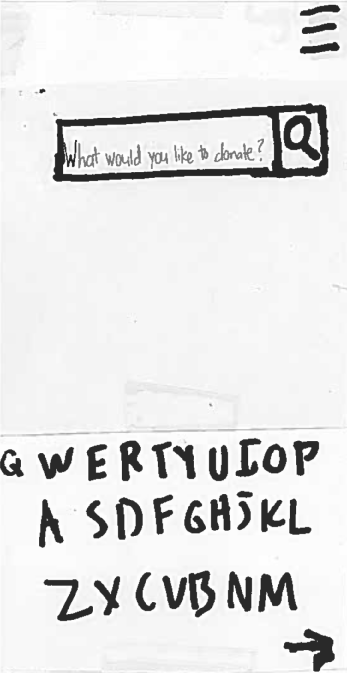 What would you like to donate?
Q W E R T Y U I O P
A S D F G H J K L
Z X C V B N M